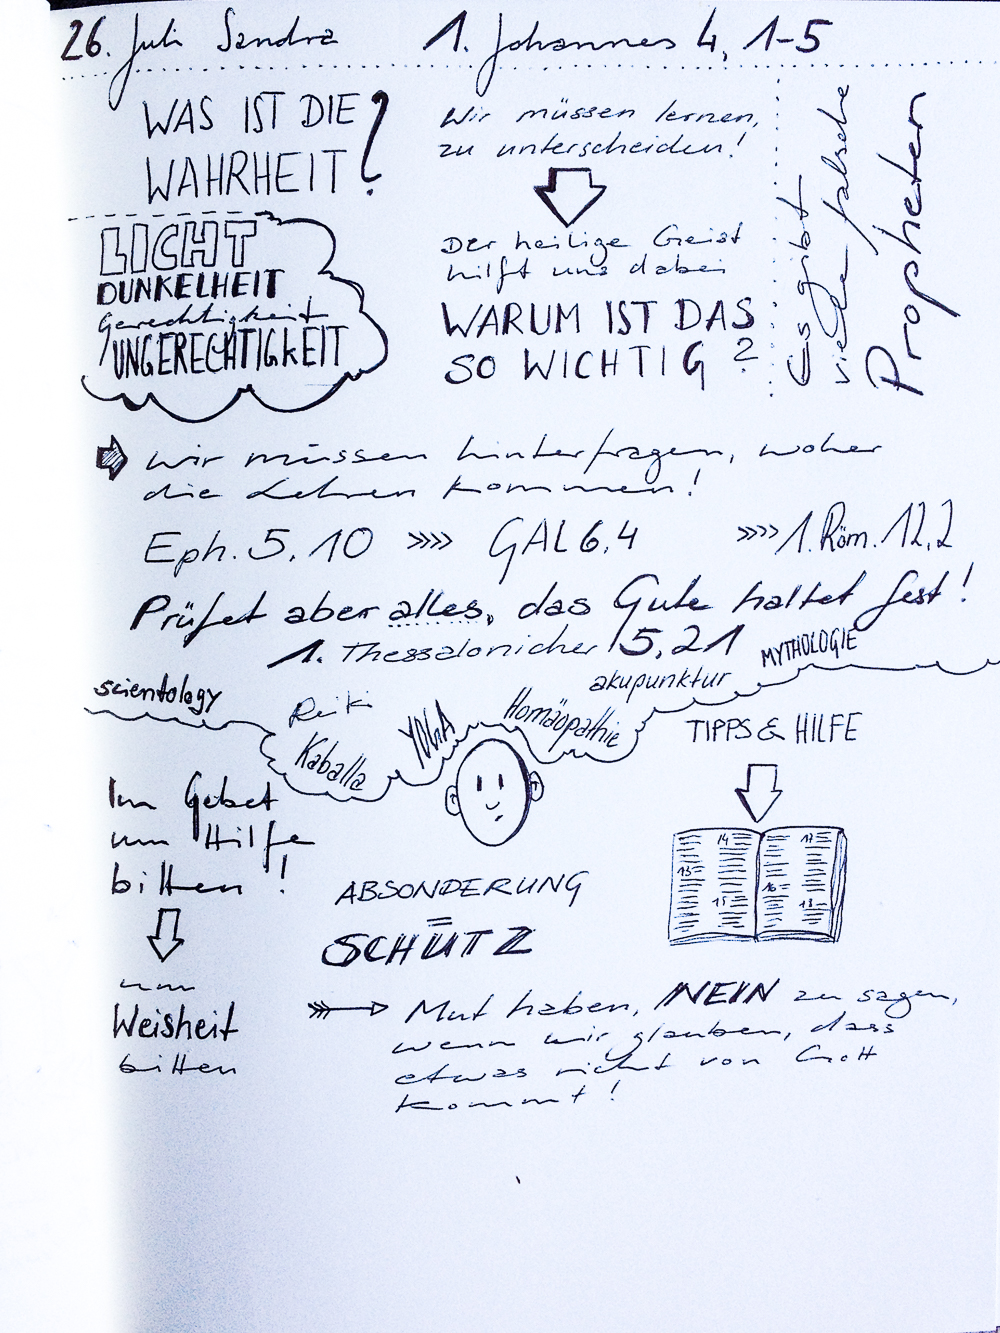 26. Juli Sandra 1. Johannes 4, 1-5
WAS IST DIE
WAHRHEIT?
LICHT
DUNKELHEIT
Gerechtigkeit
UNGERECHTIGKEIT
Wir müssen lernen,
zu unterscheiden!
Der heilige Geist
hilft uns dabei
WARUM IST DAS
SO WICHTIG?
Es gibt
viele falsche
Propheten
Wir müssen hinterfragen, woher
die Lehren kommen!
Eph. 5, 10 »» GAL 6, 4 »» 1. Röm. 12, 2
Prüfet aber alles, das Gute haltet fest!
1. Thessalonicher 5, 21
scientology
Reiki
Kaballa
YOGA
Homöopathie
akupunktur
MYTHOLOGIE
Im Gebet
um Hilfe
bitten!
um
Weisheit
bitten
TIPPS & HILFE
13
14
15
16
17
18
ABSONDERUNG
=
SCHÜTZ
Mut haben, NEIN zu sagen,
wenn wir glauben, dass
etwas nicht von Gott
kommt!